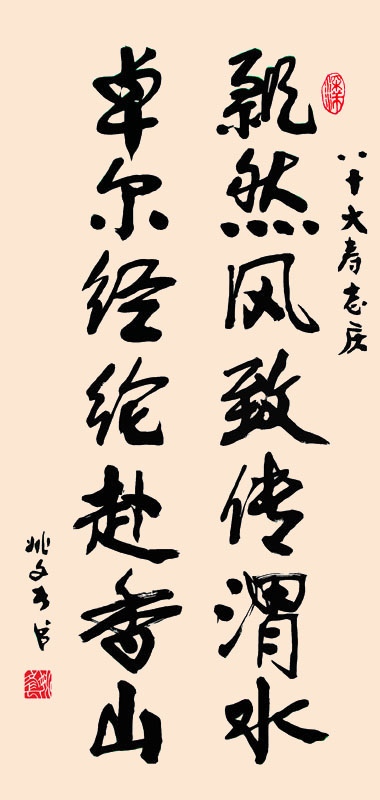 八十大寿志庆
飘然风致传渭水
卓尔经纶赴香山
姚文书